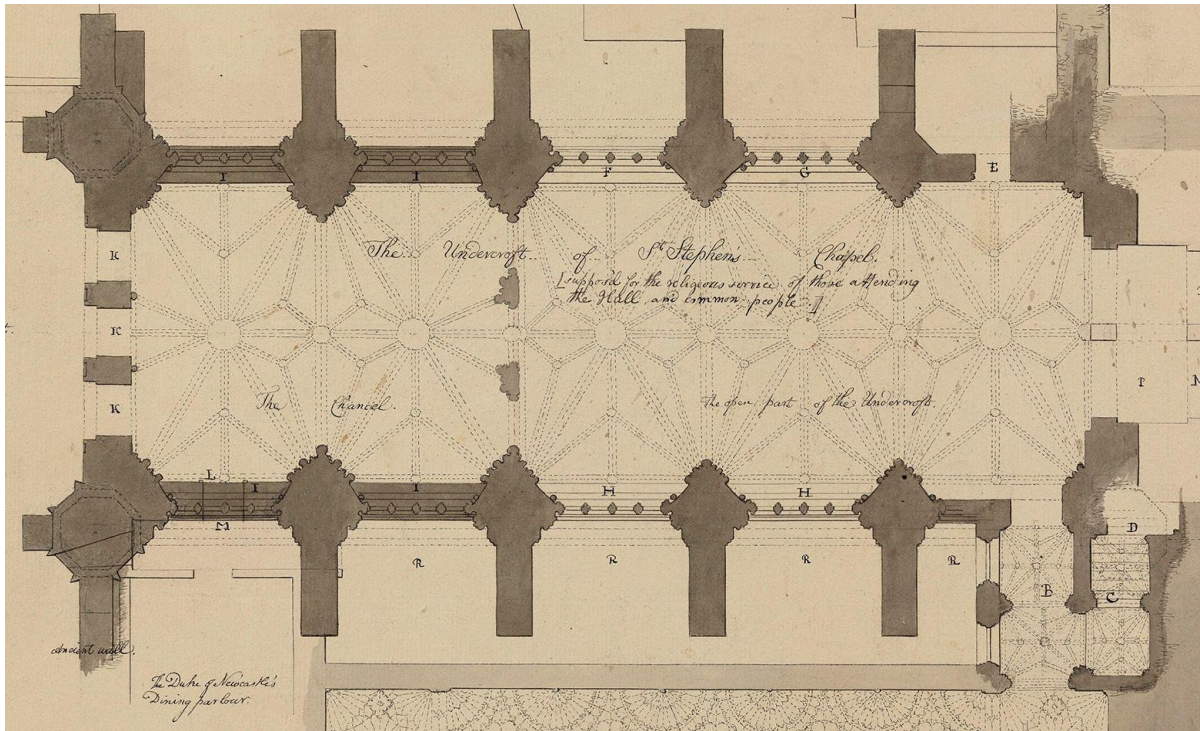 I I F G E
K
The Undercroft of St. Stephen's Chapel.
[supposed for the religious service of those attending
the Hall, and common people]
K
P
K
The Chancel.
The open part of the Undercroft.
L I I H H
M
R R R R
D
B
C
Ancient wall.
The Duke of Newcastle's
Dining parlour.